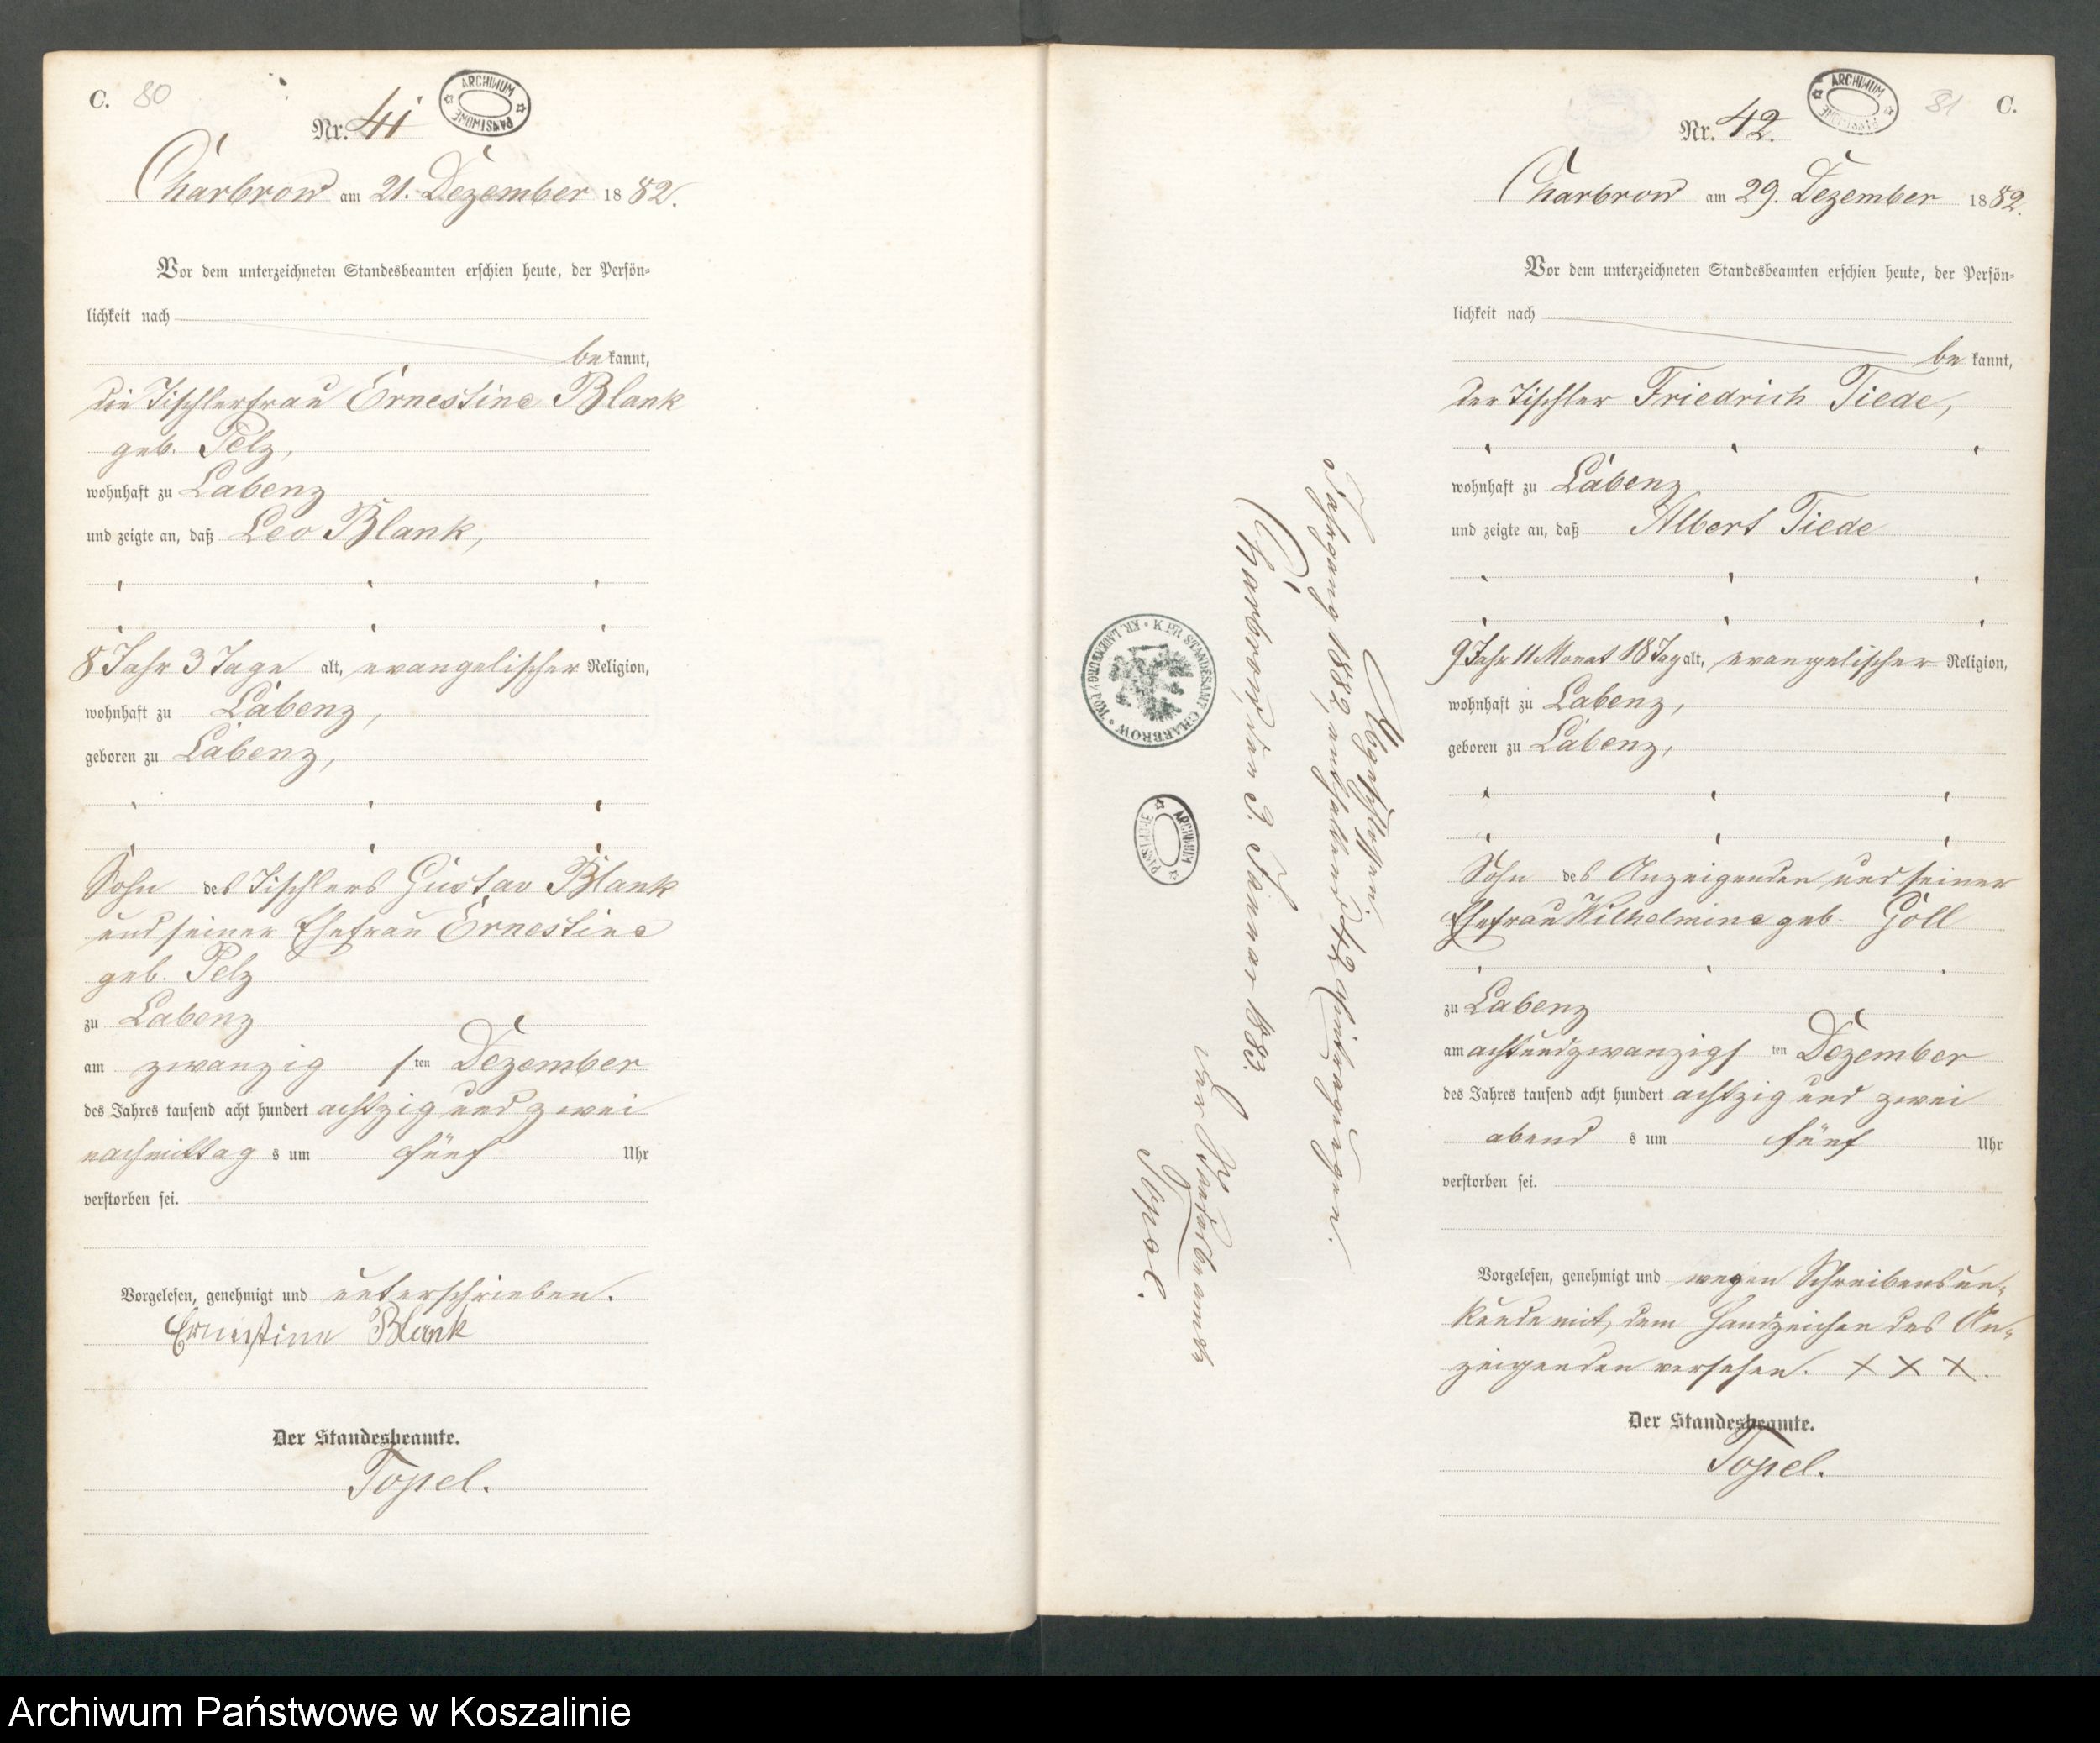 C. 80
Nr. 41
ARCHIWUM PAŃSTWOWE
Charbrow am 21. Dezember 1882.
Vor dem unterzeichneten Standesbeamten erschien heute, der Persön=
lichkeit nach
bekannt,
die Tischlerfrau Ernestine Blank
geb. Pelz,
wohnhaft zu Labenz
und zeigte an, daß Leo Blank,
8 Jahr 3 Tage alt, evangelischer Religion,
wohnhaft zu Labenz,
geboren zu Labenz,
Sohn des Tischlers Gustav Blank
und seiner Ehefrau Ernestine
geb. Pelz
zu Labenz
am zwanzigsten Dezember
des Jahres tausend acht hundert achtzig und zwei
nachmittags um fünf Uhr
verstorben sei.
Vorgelesen, genehmigt und unterschrieben.
Ernestine Blank
Der Standesbeamte.
Topel.
Abgeschlossen.
Jahrgang 1882, enthaltend 42 Eintragungen.
Charbrow, den 3. Januar 1883.
Der Standesbeamte
Topel.
K. PR. STANDESAMT CHARBROW
KR. LAUENBURG I/POM.
ARCHIWUM PAŃSTWOWE
ARCHIWUM PAŃSTWOWE
81 C.
Nr. 42.
Charbrow am 29. Dezember 1882.
Vor dem unterzeichneten Standesbeamten erschien heute, der Persön=
lichkeit nach
bekannt,
der Tischler Friedrich Tiede,
wohnhaft zu Labenz
und zeigte an, daß Albert Tiede
9 Jahr 11 Monat 18 Tag alt, evangelischer Religion,
wohnhaft zu Labenz,
geboren zu Labenz,
Sohn des Anzeigenden und seiner
Ehefrau Wilhelmine geb. Göll
zu Labenz
am achtundzwanzigsten Dezember
des Jahres tausend acht hundert achtzig und zwei
abends um fünf Uhr
verstorben sei.
Vorgelesen, genehmigt und wegen Schreibensun=
kunde mit dem Handzeichen des An=
zeigenden versehen. X X X.
Der Standesbeamte.
Topel.
Archiwum Państwowe w Koszalinie